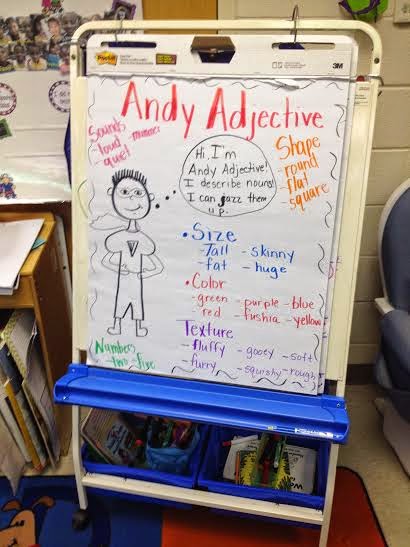 Post-it
3M
Andy Adjective
Sounds
- loud
- quiet
Hi, I'm
Andy Adjective!
I describe nouns!
I can jazz them
up.
Shape
- round
- flat
- square
• Size
- Tall - skinny
- fat - huge
• Color
- green - purple - blue
- red - fushia - yellow
Texture
- fluffy - gooey - soft
- furry - squishy - rough
Numbers
- two - five